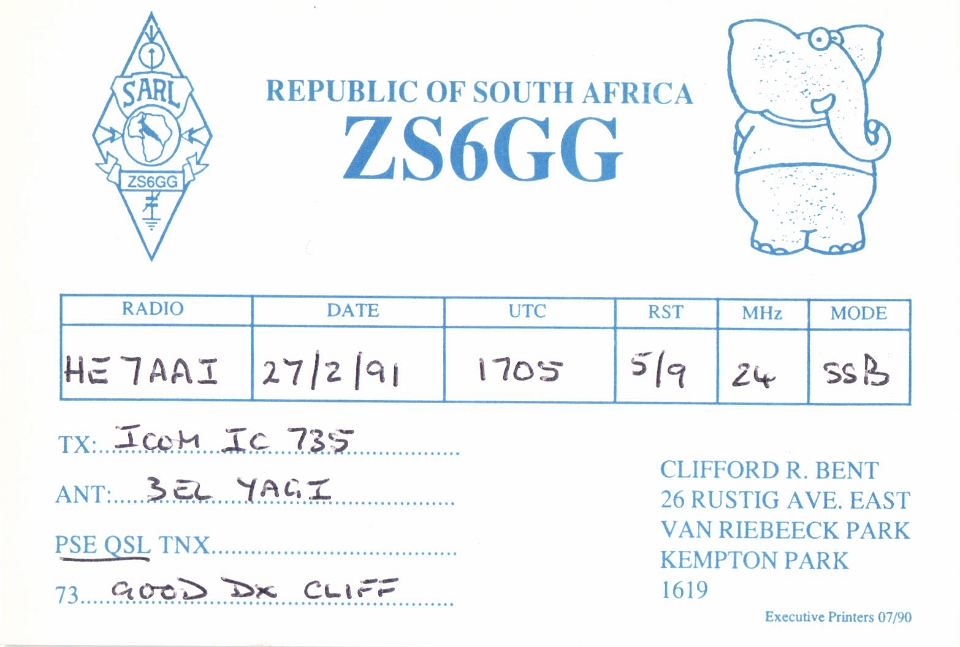 SARL
ZS6GG
REPUBLIC OF SOUTH AFRICA
ZS6GG
RADIO DATE UTC RST MHz MODE
HE7AAI 27/2/91 1705 5/9 24 SSB
TX: ICOM IC 735
ANT: 3EL YAGI
PSE QSL TNX
73 GOOD DX CLIFF
CLIFFORD R. BENT
26 RUSTIG AVE. EAST
VAN RIEBEECK PARK
KEMPTON PARK
1619
Executive Printers 07/90